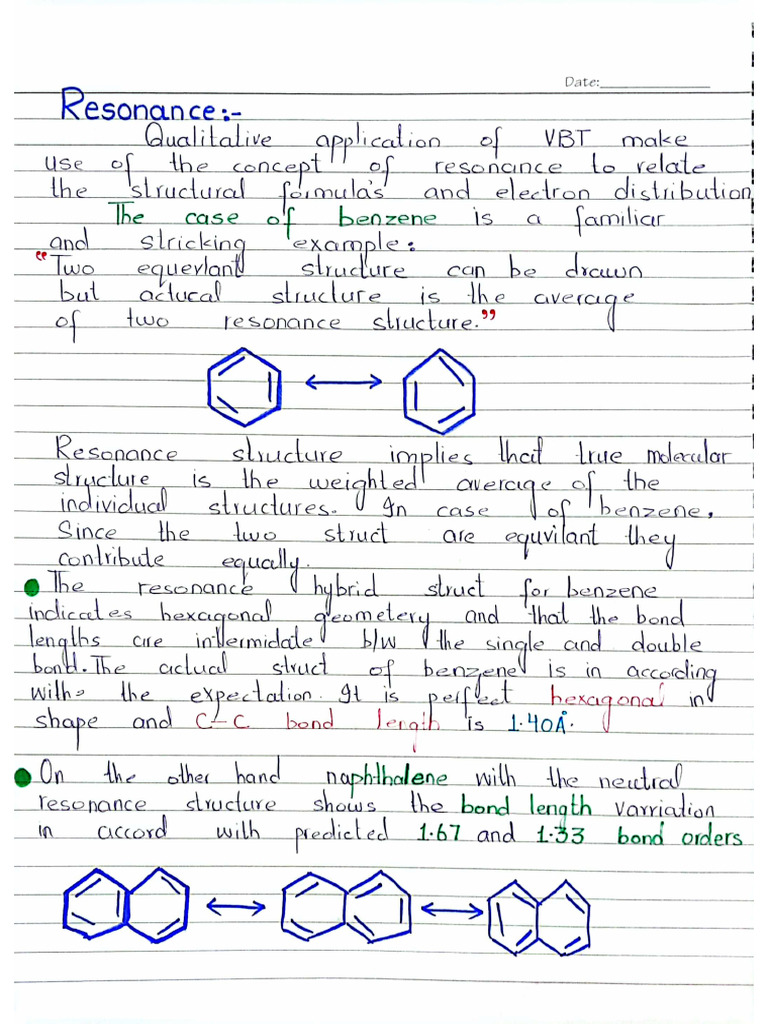 Date:
Resonance:-
Qualitative application of VBT make
use of the concept of resonance to relate
the structural formula's and electron distribution
The case of benzene is a familiar
and stricking example:
"Two equerlant structure can be drawn
but actucal structure is the average
of two resonance structure."
Resonance structure implies that true molecular
structure is the weighted average of the
individual structures. In case of benzene,
Since the two struct are equvilant they
contribute equally.
The resonance hybrid struct for benzene
indicates hexagonal geometery and that the bond
lengths are intermidate b/w the single and double
bond. The actual struct of benzene is in according
with the expectation. It is perfect hexagonal in
shape and C-C bond length is 1.40Å.
On the other hand naphthalene with the neutral
resonance structure shows the bond length varriation
in accord with predicted 1.67 and 1.33 bond orders